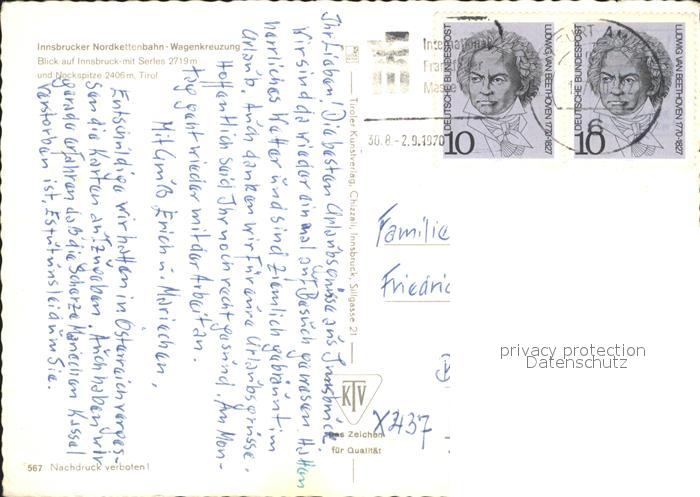 Innsbrucker Nordkettenbahn - Wagenkreuzung
Blick auf Innsbruck mit Serles 2719 m
und Nockspitze 2406 m, Tirol
Ihr Lieben! Die besten Urlaubsgrüsse aus Innsbruck.
Wir sind da wieder einmal auf Besuch gewesen. Hatten
herrliches Wetter und sind ziemlich gebräunt im
Urlaub. Auch danken wir für eure Urlaubsgrüsse.
Hoffentlich seid Ihr noch recht gesund. Am Mon-
tag geht wieder mit der Arbeit an.
Mit Gruß, Erich u. Mariechen,
Entschuldige wir hatten in Österreich verges-
sen die Karten aufzugeben. Auch haben wir
gerade erfahren daß die Mariechen Kassel
verstorben ist. Es tut uns leid um Sie.
567 Nachdruck verboten!
Tiroler Kunstverlag, Chizzali, Innsbruck, Sillgasse 21
KTV
Das Zeichen
für Qualität
Internationale
Frankfurter
Messe
30.8.-2.9.1970
FURT AM
6
DEUTSCHE BUNDESPOST
LUDWIG VAN BEETHOVEN 1770-1827
10
DEUTSCHE BUNDESPOST
LUDWIG VAN BEETHOVEN 1770-1827
10
Familie
Friedric
X437
privacy protection
Datenschutz